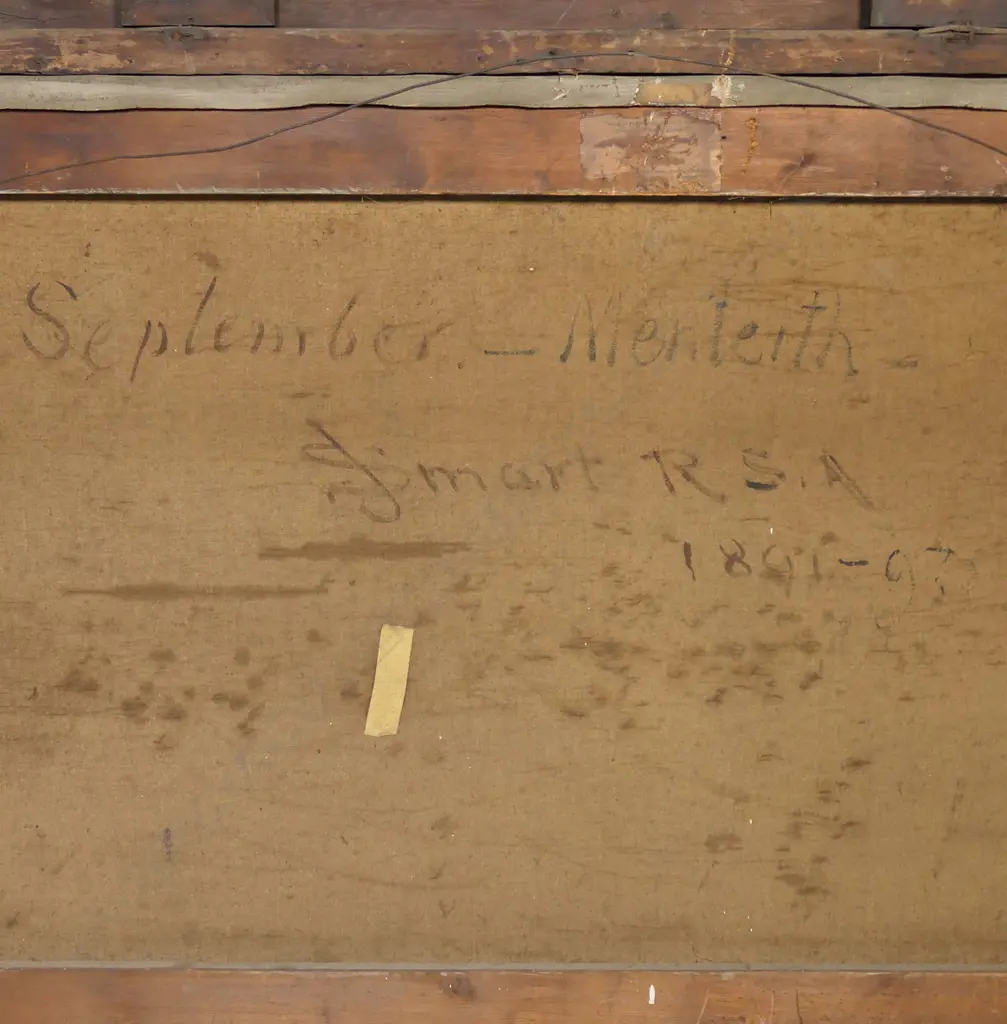 September. – Menteith –
J Smart R.S.A
1891-93